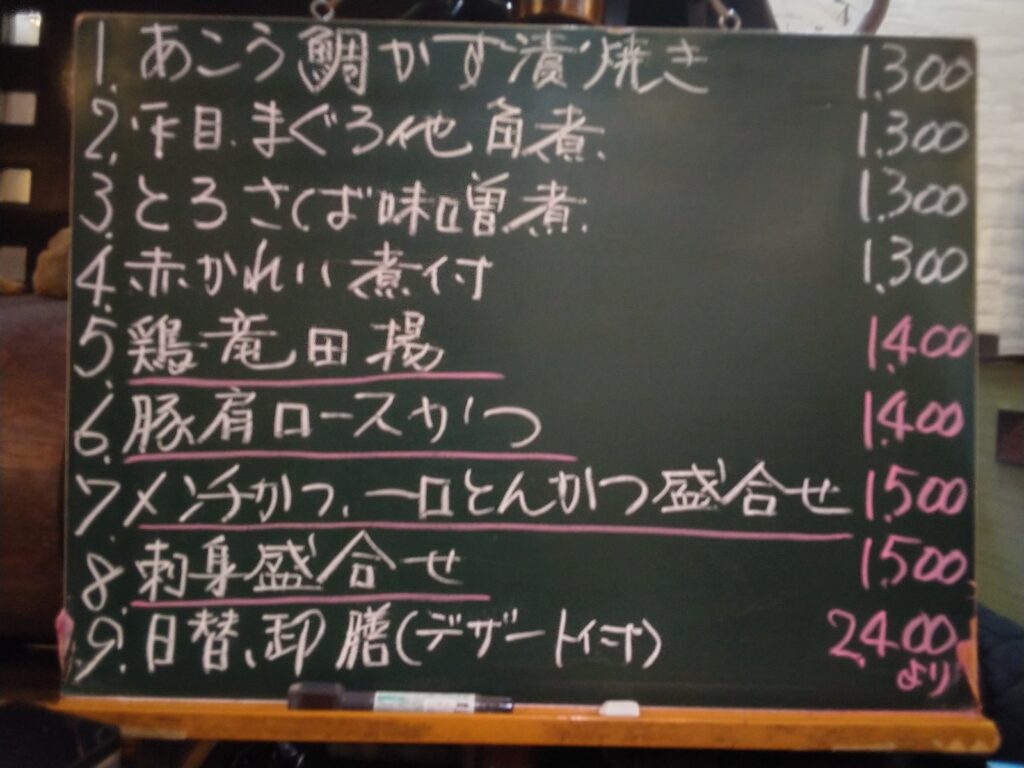 1. あこう鯛かす漬焼き 1.300
2. 平目.まぐろ他角煮. 1.300
3. とろさば味噌煮. 1.300
4. 赤かれい煮付 1.300
5. 鶏竜田揚 1.400
6. 豚肩ロースかつ 1.400
7. メンチかつ、一口とんかつ盛合せ 1.500
8. 刺身盛合せ 1.500
9. 日替、御膳(デザート付) 2.400
より